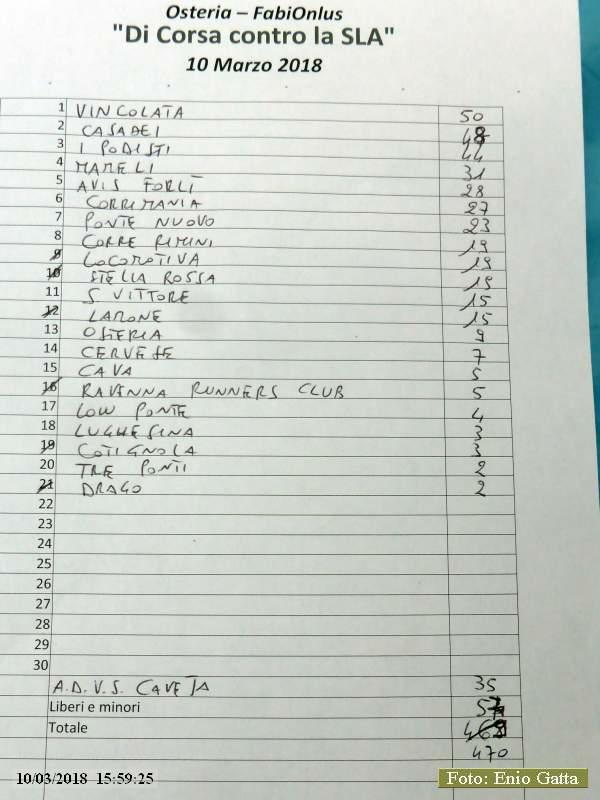 Osteria – FabiOnlus
"Di Corsa contro la SLA"
10 Marzo 2018
1 VINCOLATA 50
2 CASADEI 48
3 I PODISTI 44
4 MAMELI 31
5 AVIS FORLÌ 28
6 CORRIMANIA 27
7 PONTE NUOVO 23
8 CORRE RIMINI 19
9 LOCOMOTIVA 19
10 STELLA ROSSA 19
11 S VITTORE 15
12 LAMONE 15
13 OSTERIA 9
14 CERVESE 7
15 CAVA 5
16 RAVENNA RUNNERS CLUB 5
17 LOW PONTE 4
18 LUGHESINA 3
19 COTIGNOLA 3
20 TRE PONTI 2
21 DRAGO 2
22
23
24
25
26
27
28
29
30
A.D.V.S. CAVEJA 35
Liberi e minori 57
Totale 468
470
10/03/2018 15:59:25
Foto: Enio Gatta